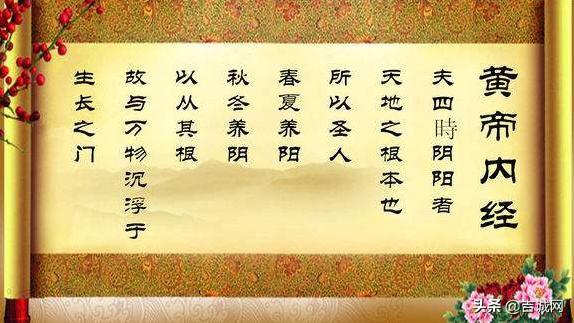 黄帝内经
夫四時阴阳者
天地之根本也
所以圣人
春夏养阳
秋冬养阴
以从其根
故与万物沉浮于
生长之门
头条 @吉城网